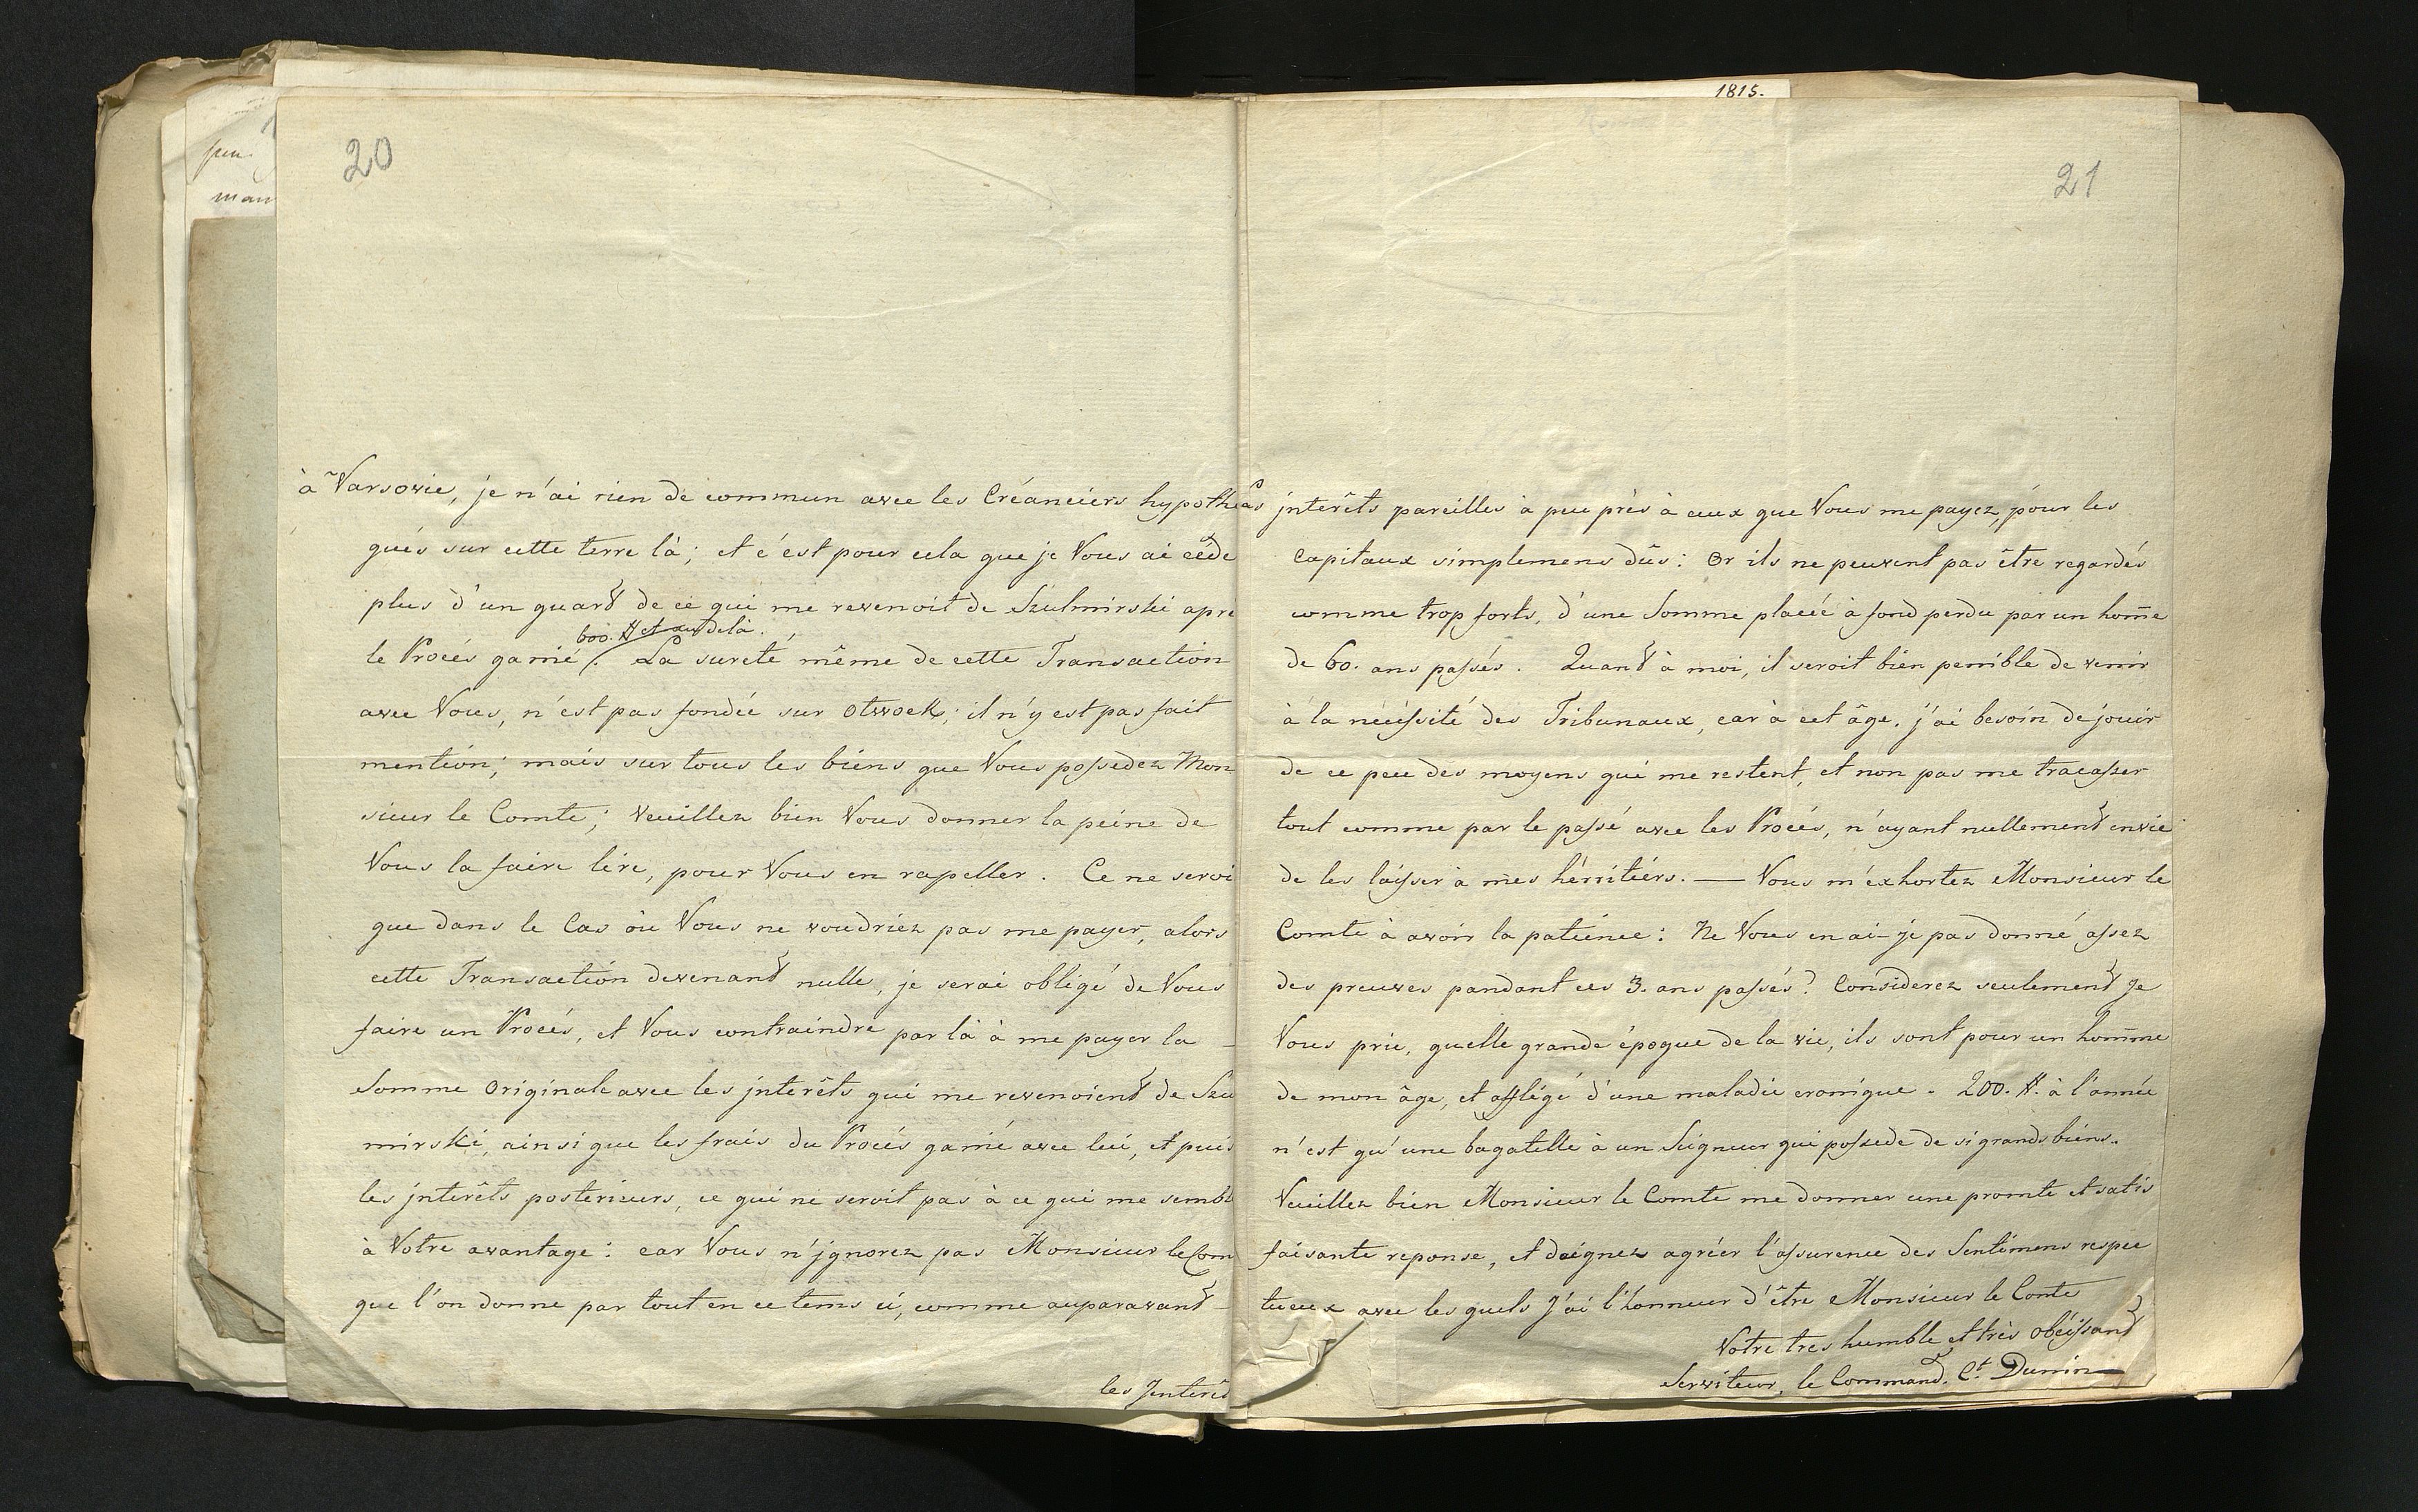 20
à Varsovie, je n'ai rien de commun avec les Créanciers hypothe
qués sur cette terre là; et c'est pour cela que je Vous ai cédé
plus d'un quard de ce qui me revenoit de Szulmirski apre
600. # et au delà.
le Procés gamé. La sureté même de cette Transaction
avec Vous, n'est pas fondée sur Otwock; il n'y est pas fait
mention; mais sur tous les biens que Vous possedez Mon
sieur le Comte; veuillez bien Vous donner la peine de
Vous la faire lire, pour Vous en rapeller. Ce ne seroi
que dans le Cas ou Vous ne voudriez pas me payer, alors
cette Transaction devenant nulle, je serai obligé de Vous
faire un Procés, et Vous contraindre par là à me payer la
Somme Originale avec les jnterêts qui me revenoient de Szu
mirski, ainsi que les frais du Procés garné avec lui, et puis
les jnterêts posterieurs, ce qui ne seroit pas à ce qui me semb
à Votre avantage: car Vous n'jgnorez pas Monsieur le Com
que l'on donne par tout en ce tems ci, comme auparavant
les Jnterêt
1815.
21
jnterêts pareilles à peu près à ceux que Vous me payez, pour les
Capitaux simplemens dûs: Or ils ne peuvent pas être regardés
comme trop forts, d'une Somme placée à fond perdu par un hom̄e
de 60. ans passés. Quand à moi, il seroit bien penible de venir
à la necéssité des Tribunaux, car à cet âge, j'ai besoin de jouir
de ce peu des moyens qui me restent, et non pas me tracasser
tout comme par le passé avec les Procés, n'ayant nullement envie
de les laisser à mes hérritiérs. — Vous m'éxhortez Monsieur le
Comte à avoir la patience: Ne Vous en ai-je pas donné assez
des preuves pandant ces 3. ans passés? Considerez seulement Je
Vous prie, quelle grande époque de la vie, ils sont pour un hom̄me
de mon âge, et afflégé d'une maladie cronique. 200. #. à l'année
n'est qu'une bagatelle à un Seigneur qui possede de si grands biens.
Veuillez bien Monsieur le Comte me donner une promte et satis
faisante reponse, et daignez agréer l'assurence des Sentimens respec
tueux avec les quels J'ai l'honneur d'être Monsieur le Conte
Votre tres humble et très obéissant
Serviteur, le Command. Ct. Dunin